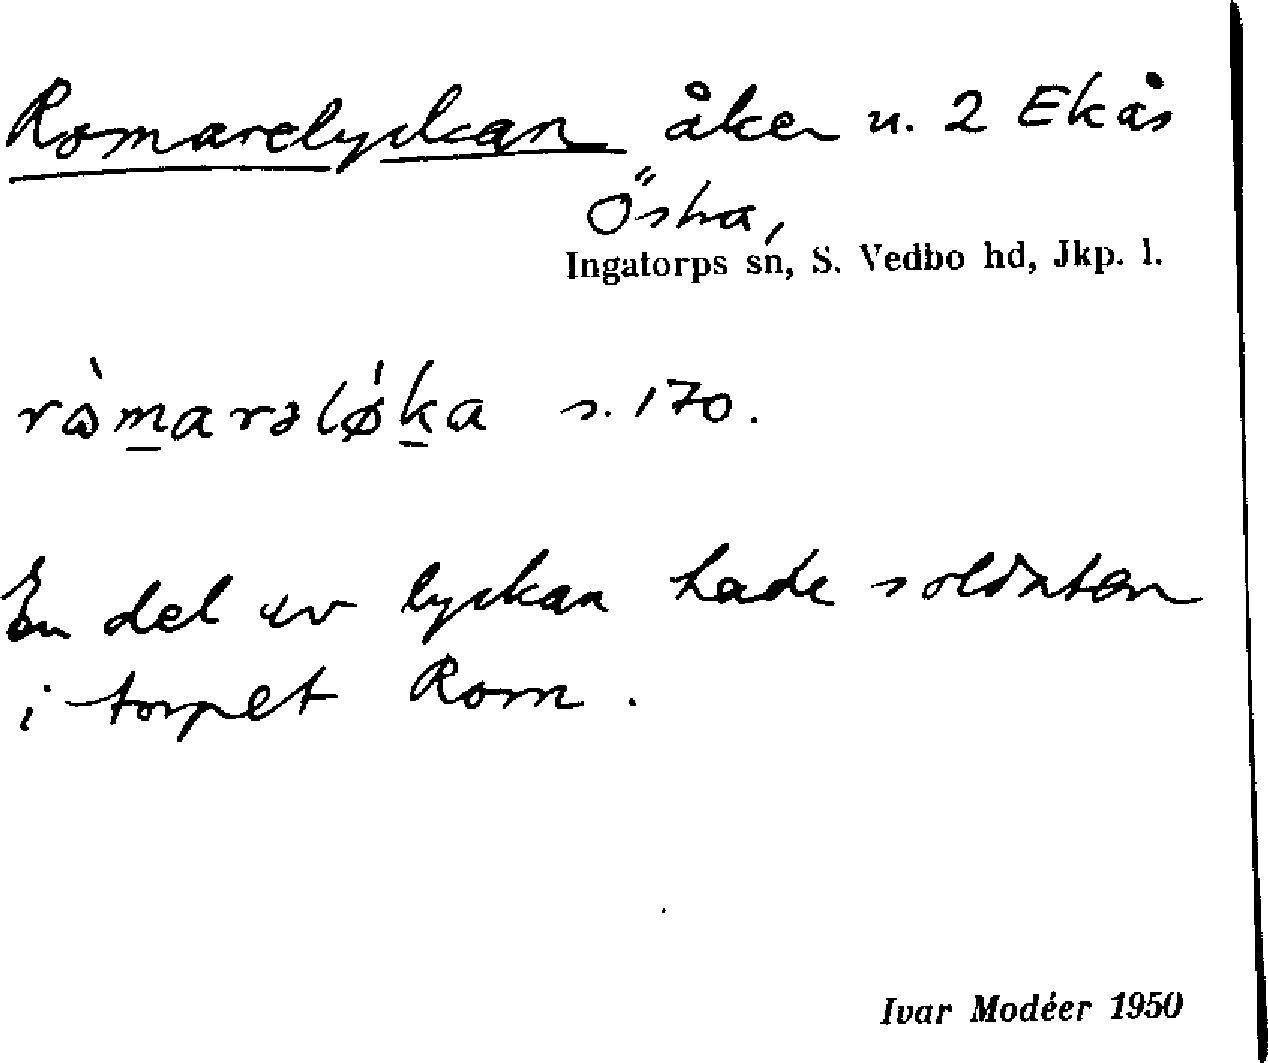 Romarelyckan åker u. 2 Ekås
Östra,
Ingatorps sn, S. Vedbo hd, Jkp. l.
ròmarəlǿka s. 170.
En del av lyckan hade soldaten
i torpet Rom.
Ivar Modéer 1950